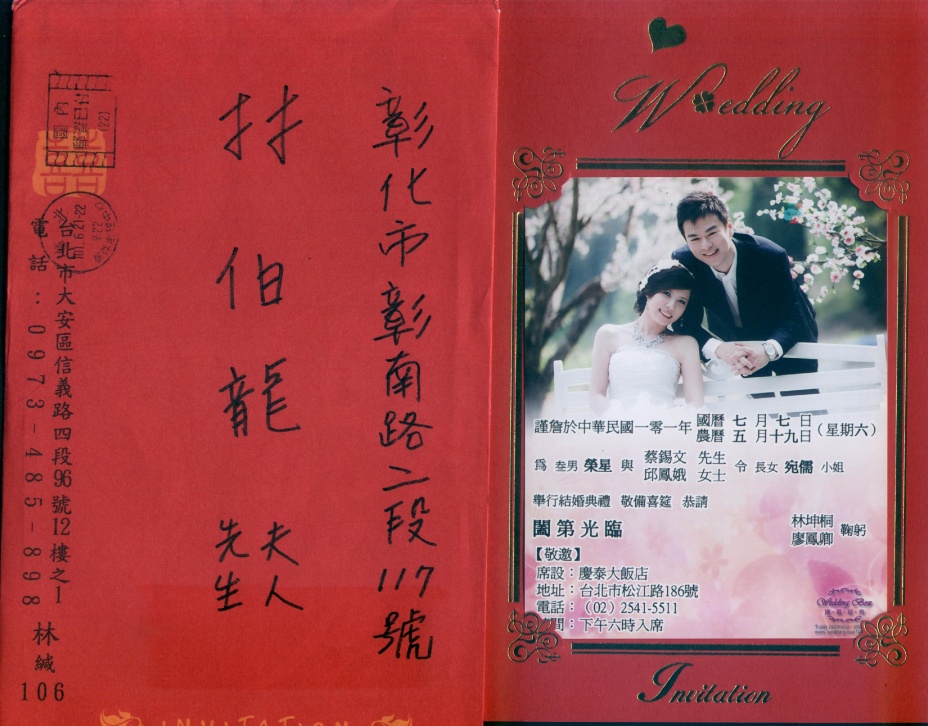 彰化市彰南路二段117號
林伯龍
夫人
先生
國內
台北市大安區信義路四段96號12樓之1
電話：0973-485-898 林緘
106
INVITATION
Wedding
謹詹於中華民國一零一年 國曆 七 月 七 日 (星期六)
農曆 五 月十九日
為 叁男 榮星 與 蔡錫文 先生 令 長女 宛儒 小姐
邱鳳娥 女士
舉行結婚典禮 敬備喜筵 恭請
闔第光臨
林坤桐 鞠躬
廖鳳卿
【敬邀】
席設：慶泰大飯店
地址：台北市松江路186號
電話：（02）2541-5511
時間：下午六時入席
Wedding Box
Invitation